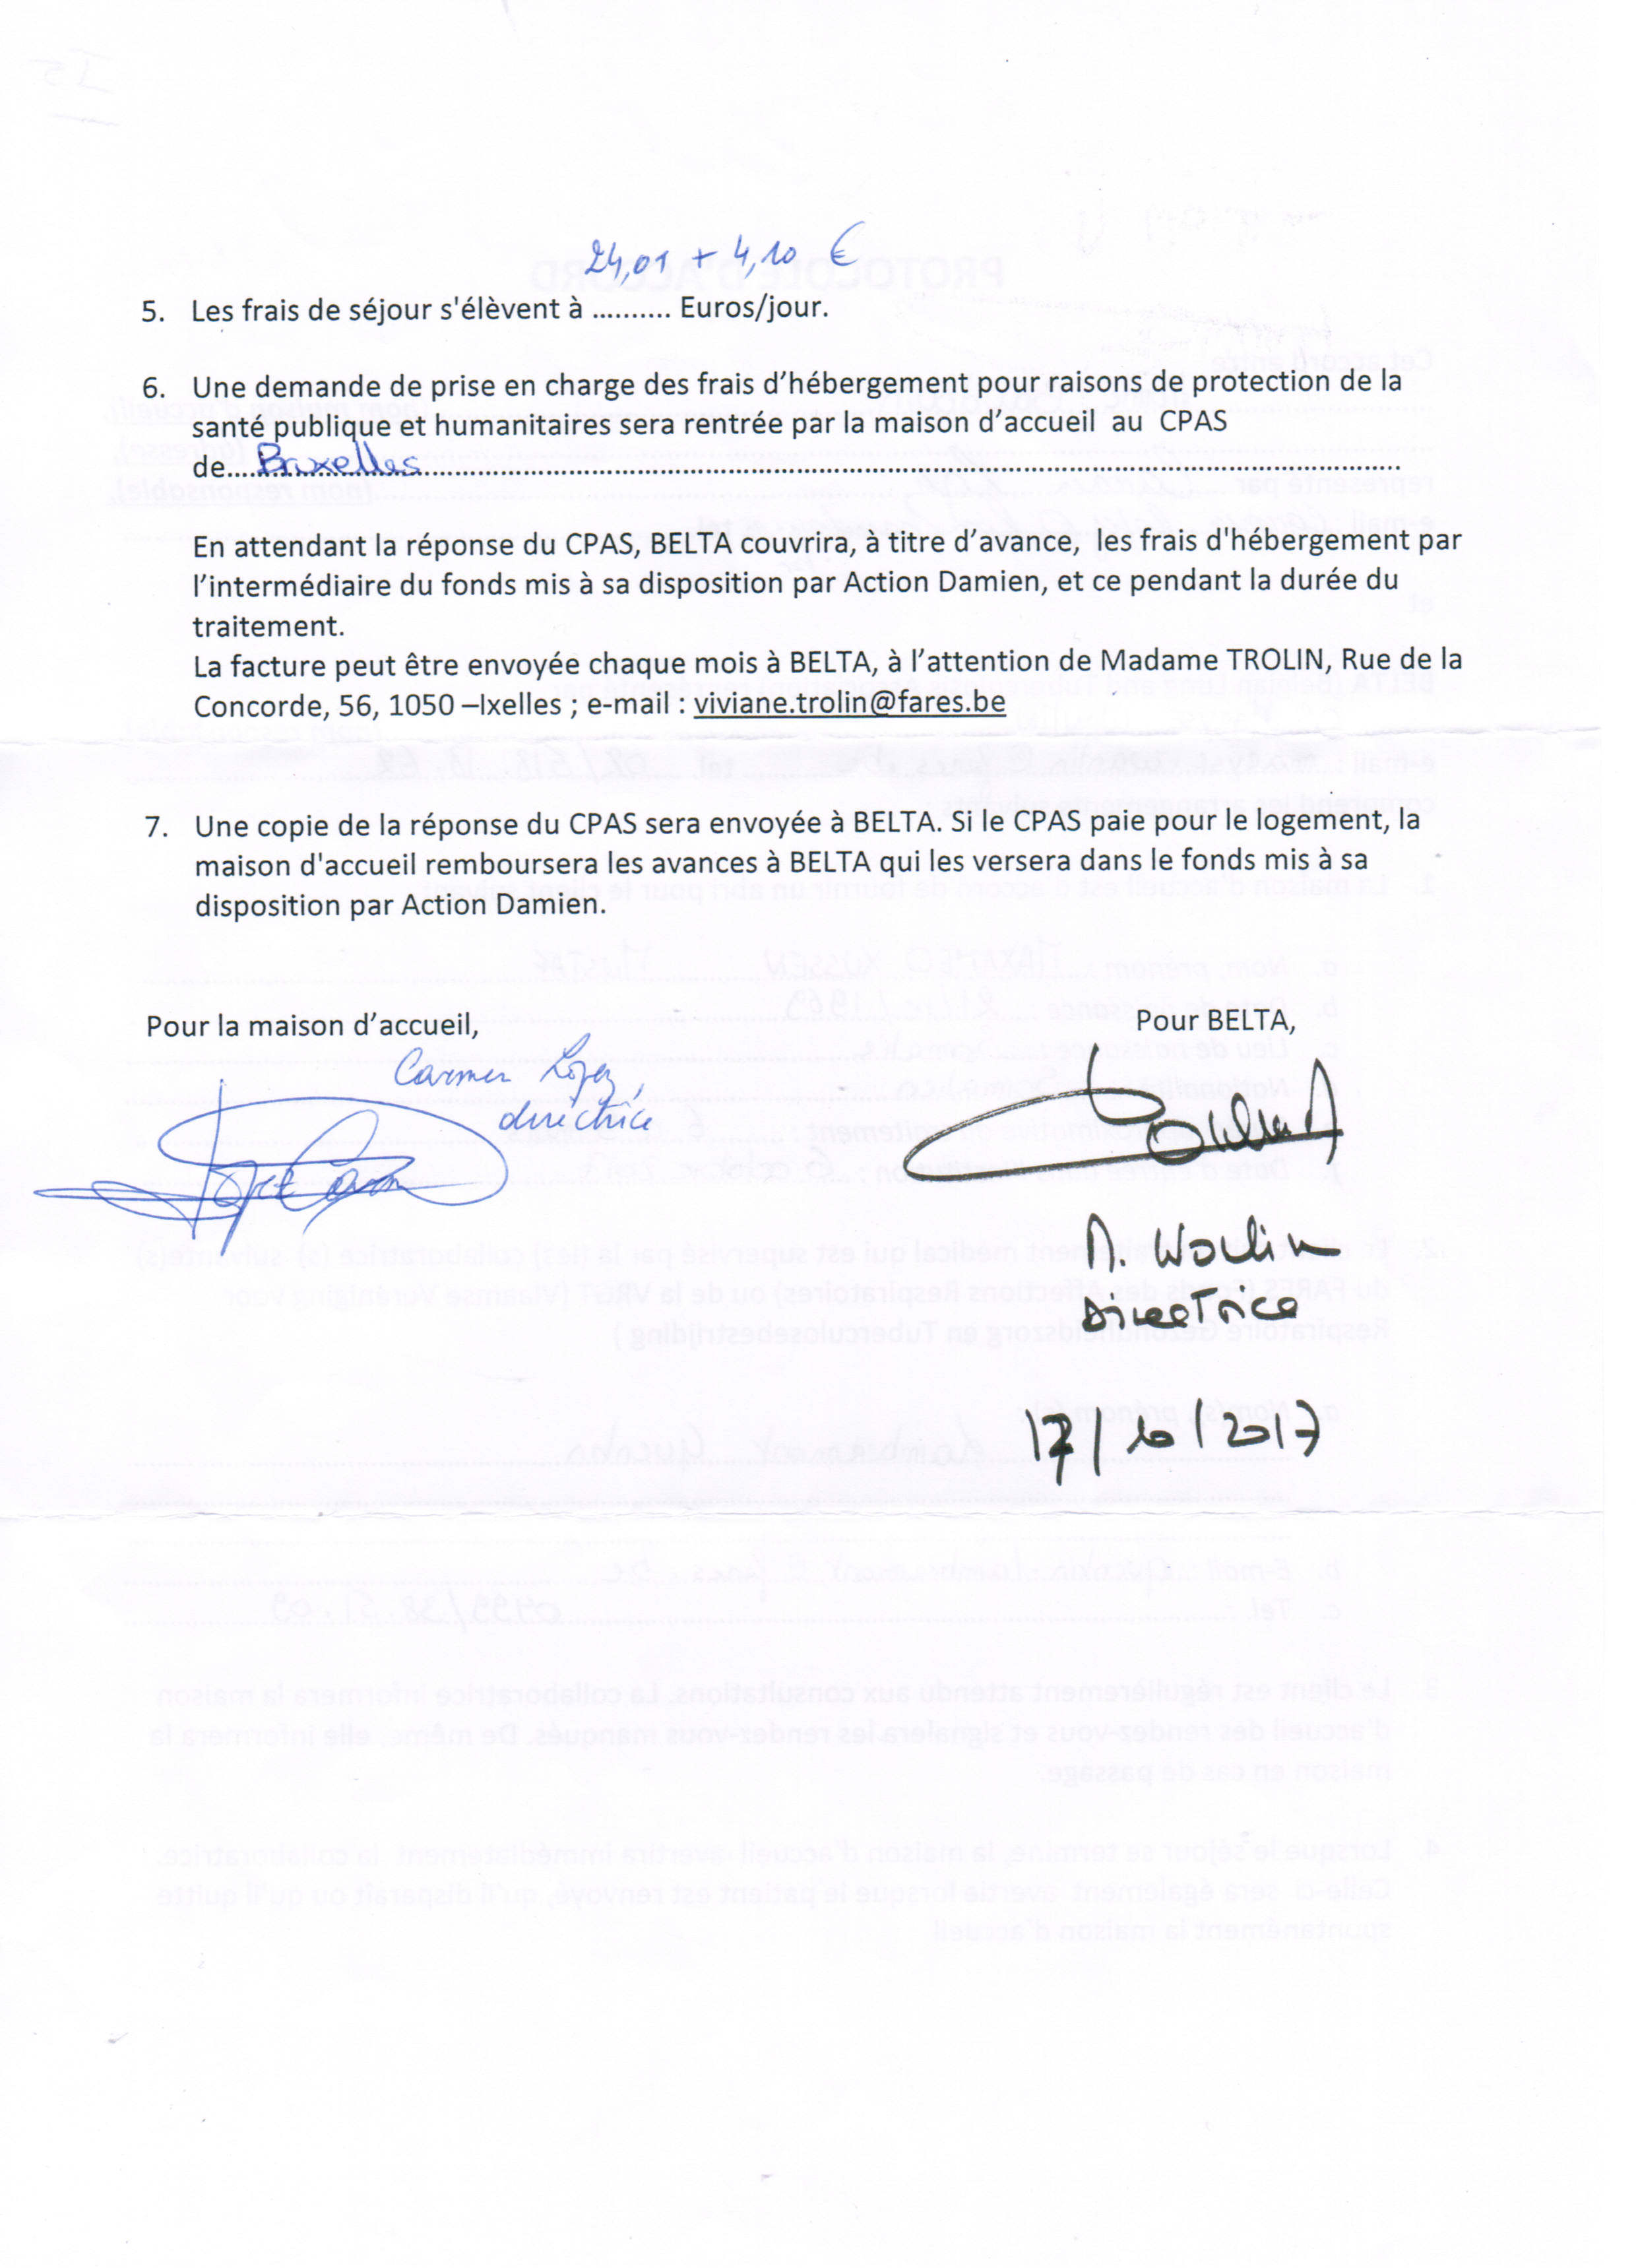 24,01 + 4,10 €
5. Les frais de séjour s'élèvent à .......... Euros/jour.
6. Une demande de prise en charge des frais d’hébergement pour raisons de protection de la
santé publique et humanitaires sera rentrée par la maison d’accueil au CPAS
de....Bruxelles....
En attendant la réponse du CPAS, BELTA couvrira, à titre d’avance, les frais d'hébergement par
l’intermédiaire du fonds mis à sa disposition par Action Damien, et ce pendant la durée du
traitement.
La facture peut être envoyée chaque mois à BELTA, à l’attention de Madame TROLIN, Rue de la
Concorde, 56, 1050 –Ixelles ; e-mail : viviane.trolin@fares.be
7. Une copie de la réponse du CPAS sera envoyée à BELTA. Si le CPAS paie pour le logement, la
maison d'accueil remboursera les avances à BELTA qui les versera dans le fonds mis à sa
disposition par Action Damien.
Pour la maison d’accueil, Pour BELTA,
Carmen Lopez,
directrice
Directrice
17/10/2017